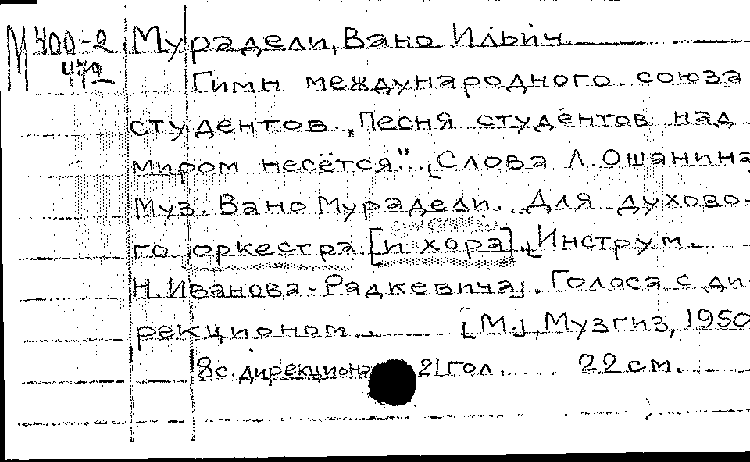 М 400-2 Мурадели, Вано Ильич
472
Гимн международного союза
студентов „Песня студентов над
миром несётся". [Слова Л. Ошанина,
Муз. Вано Мурадели. Для духово-
го оркестра [и хора]. [Инструм.
Н. Иванова-Радкевича]. Голоса с ди-
рекционом. [М.], Музгиз, 1950
8 с. дирекциона 21 гол. 22 см.